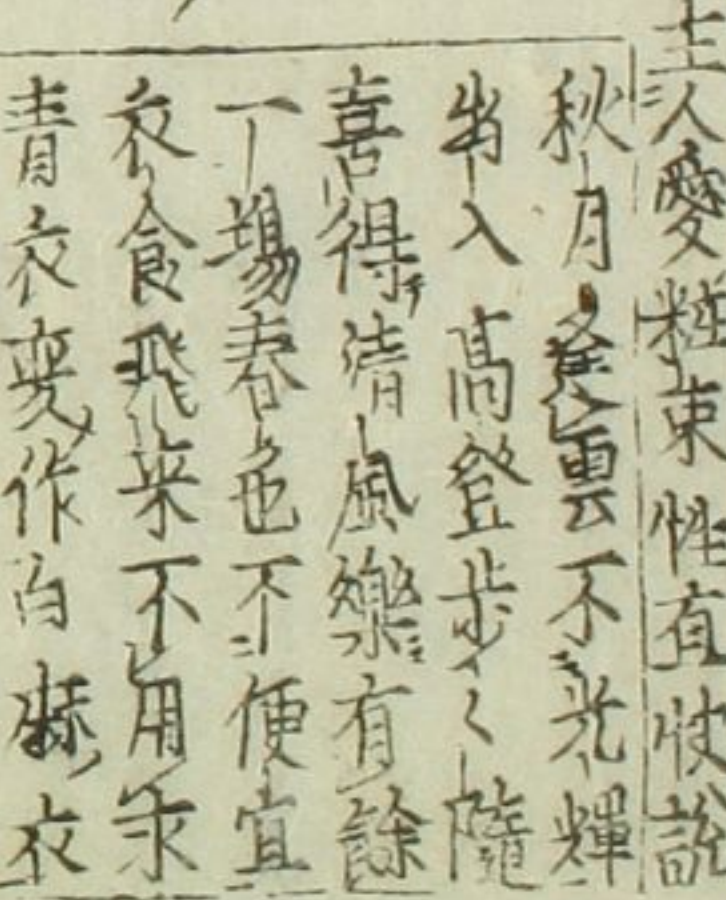 主人愛粧束性直快說
秋月逢雲不光輝
出入高登步々隨
喜得清風樂有餘
一場春色不便宜
衣食飛来不用求
青衣変作白麻衣